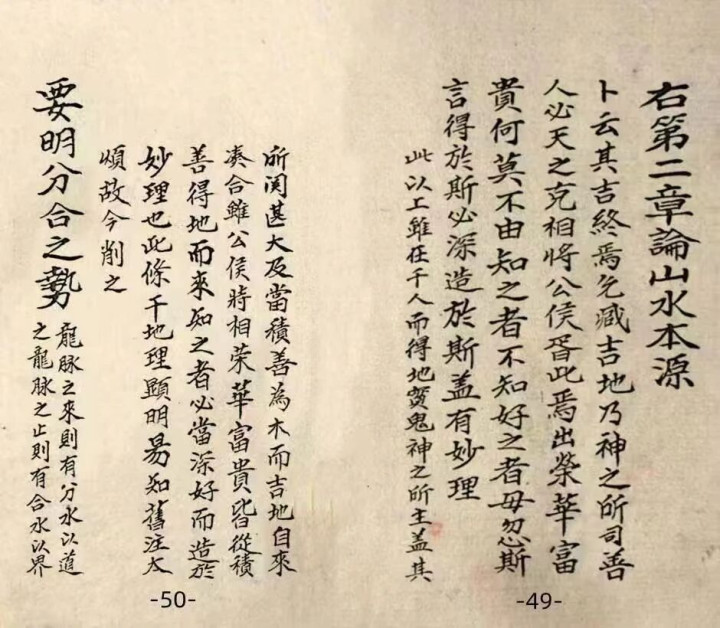 右第二章論山水本源
卜云其吉終焉允臧吉地乃神之所司善
人必天之克相將公侯胥此焉出榮華富
貴何莫不由知之者不知好之者毋忽斯
言得於斯必深造於斯盖有妙理
此以工雖在千人而得地實鬼神之所主盖其
所関甚大及當積善為木而吉地自來
凑合雖公侯將相荣華富貴皆從積
善得地而來知之者必當深好而造於
妙理也此條千地理顯明易知舊注太
煩故今削之
要明分合之勢
龍脉之來則有分水以道
之龍脉之止則有合水以界
-49-
-50-